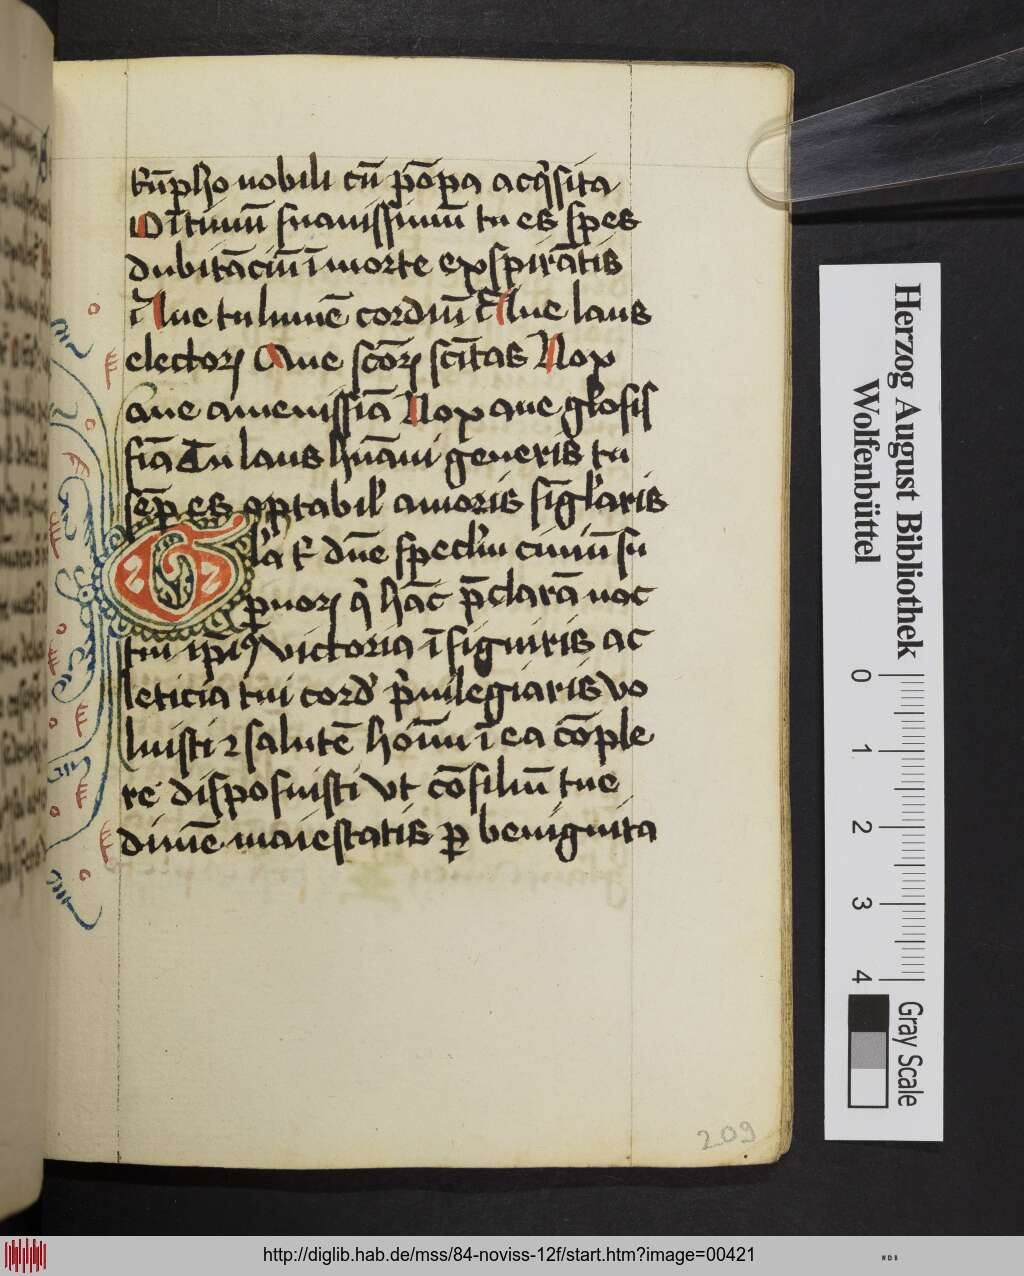 t̾ūpho nobili cū pōpa acq̇sita
O ītimū suauissimū tu es spes
dubitāciū ī morte expirātis
i̾ Aue tu lumē cordiū c̾ Aue laus
electoꝝ Aue scōꝝ scītas Vox
aue amenissīa Vox aue gl̾osis
sīa Tu laus hūani generis tu
sēꝑ es optabil̾ amoris sīgl̾aris
Gl̾a t̾ dn̄e specl̾m ciuiū su
ꝑnoꝝ q̇ hāc p̄clarā noc
tm̄ ipīꝰ victoria īsigniris ac
leticia tui cord̾ p̾uilegiaris vo
luisti ⁊ salutē hoīm ī ea cōple
re disposuisti vt cōsiliū tue
diuīe maiestatis ꝑ benignita
209
Herzog August Bibliothek
Wolfenbüttel
0 1 2 3 4
Gray Scale
http://diglib.hab.de/mss/84-noviss-12f/start.htm?image=00421